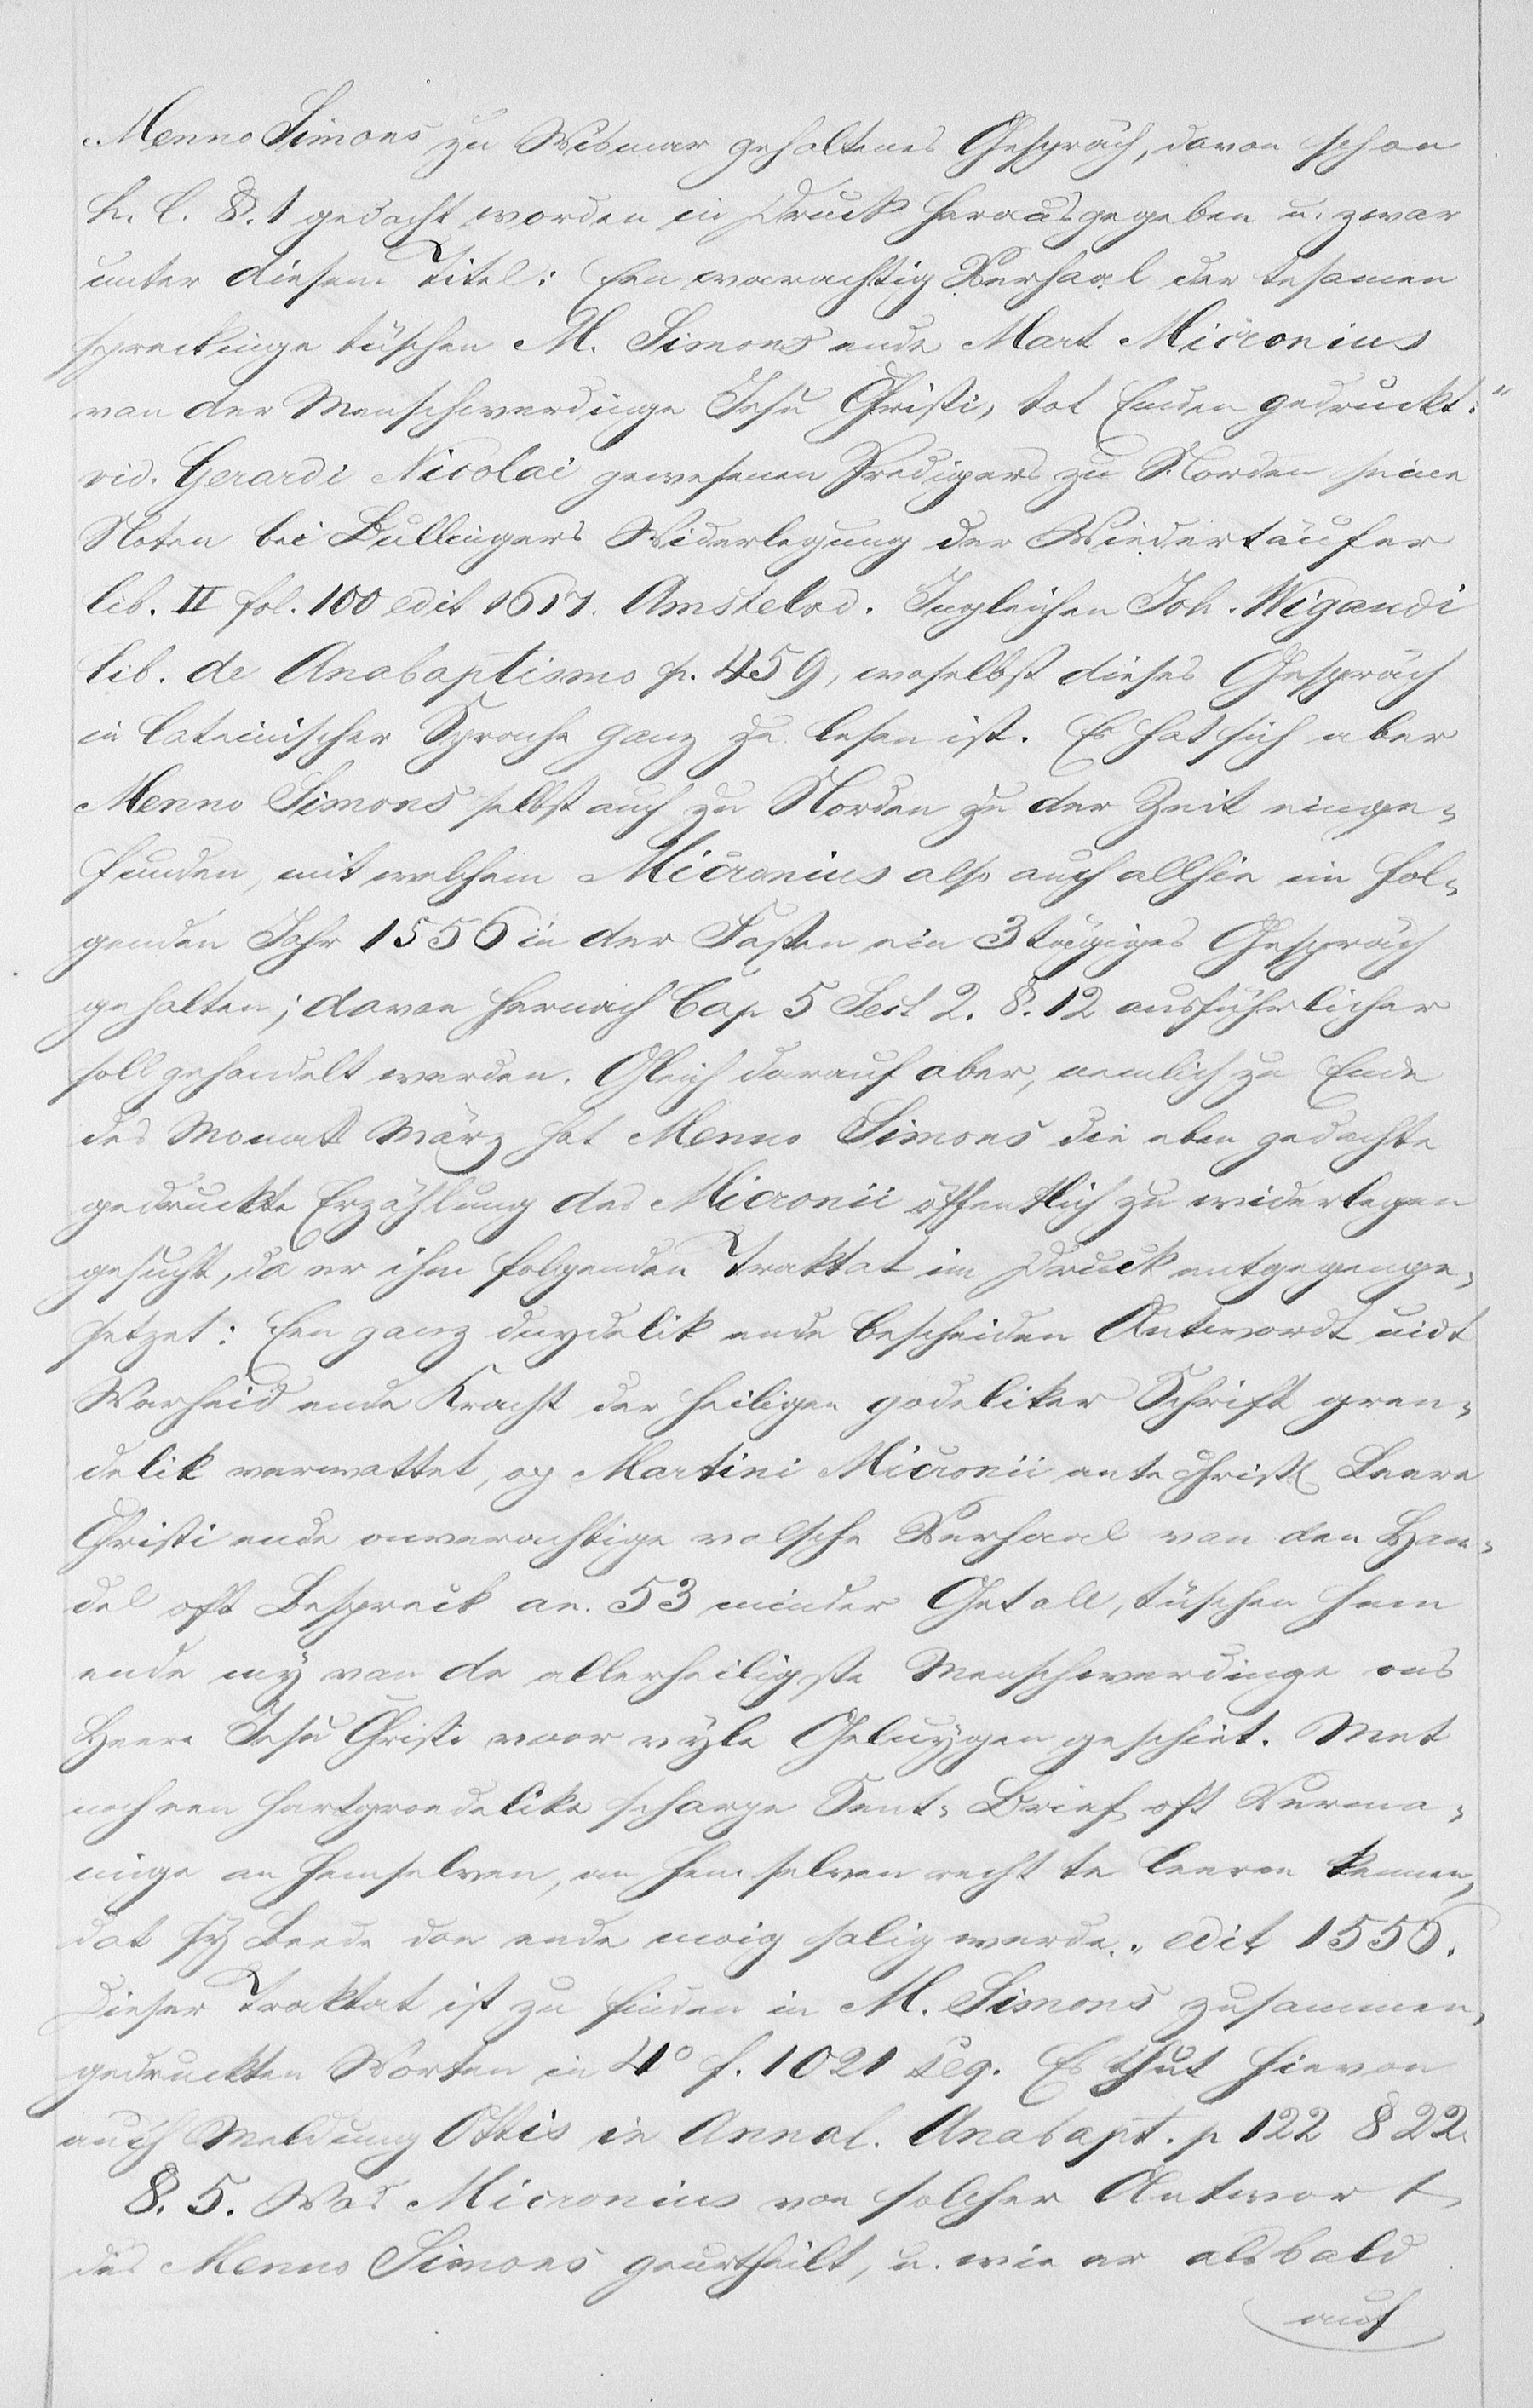 Menno Simons zu Wismar gehaltenes Gespräch, davon schon
h. l. §. 1 gedacht worden in Druck herausgegeben u. zwar
unter diesem Titel: Een warachtig Verhaal der tesamen
sprekinge tüschen M. Simons ende Mart Micronius
van der Menschwerdinge Jesu Christi, tot Emden gedruckt:"
vid. Gerardi Nicolai gewesenen Predigers zu Norden seine
Noten bei Bullingers Widerlegung der Wiedertäufer
lib. II fol. 100 edit 1617. Amstelod. Ingleichen Joh. Wigandi
lib. de Anabaptismo p. 459, woselbst dieses Gespräch
in lateinischer Sprache ganz zu lesen ist. Es hat sich aber
Menno Simons selbst auch zu Norden zu der Zeit einge-
funden, mit welchem Micronius also auch allhie im fol-
genden Jahr 1556 in der Fasten ein 3 tägiges Gespräch
gehalten; davon hernach Cap 5 Sect 2. §. 12 ausführlicher
soll gehandelt werden. Gleich darauf aber, nemlich zu Ende
des Monats März hat Menno Simons die eben gedachte
gedruckte Erzählung des Micronii öffentlich zu widerlegen
gesucht, da er ihm folgenden Traktat im Druck entgegenge-
setzet: Een ganz duydelik ende bescheiden Antwordt uidt
Warheid ende Kracht der heiligen godeliker Schrift gron-
delik vervattet, op Martini Micronii ante Christi Leere
Christi ende onwerachtige valsche Verhaal van den Han-
del oft Bespreck an. 53 minder Getall, tüschen hem
ende my van de allerheiligste Menschwerdinge ons
Heere Jesu Christi voor vyle Geluygen geschiet. Met
noch een hartgrondelike scharpe Sent-Brief oft Verma-
ninge an hemselven, om hem selven recht te leeren kennen,
dat hy Beede doe ende moig salig werde." edit 1556.
Dieser Traktat ist zu finden in M. Simons zusammen-
gedruckten Worten in 4° f. 1021 seq. Es thut hievon
auch Meldung Ottis in Annal. Anabapt. p 122 § 22.
§. 5. Was Micronius von solcher Antwort
des Menno Simons geurtheilt, u. wie er alsbald
auf